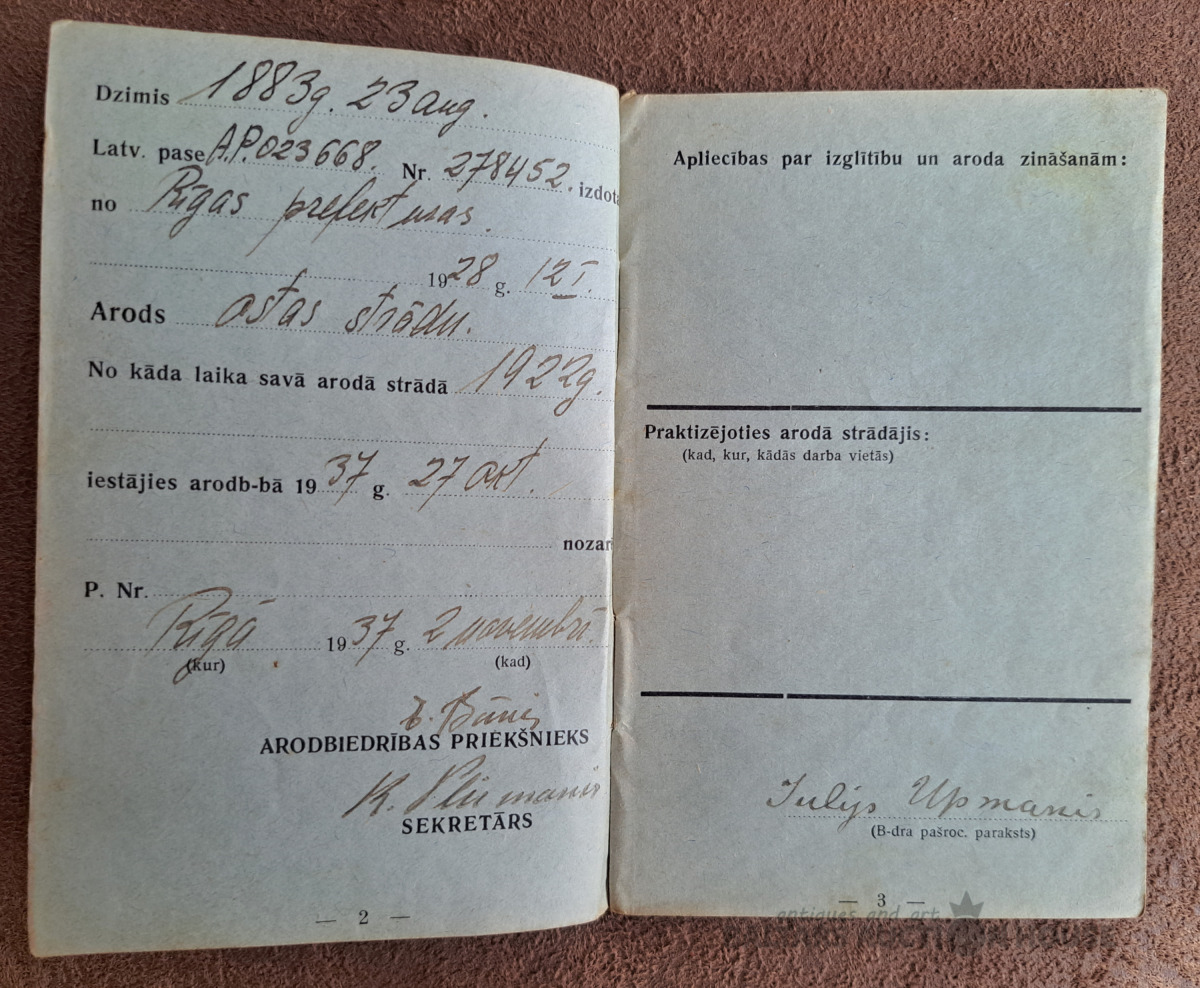 Dzimis 1883g. 23 aug.
Latv. pase A.P.023668. Nr. 278452. izdota
no Rīgas prefekturas.
1928 g. 12 I.
Arods ostas strādn.
No kāda laika savā arodā strādā 1922g.
iestājies arodb-bā 1937 g. 27 okt.
nozar
P. Nr.
Rīgā 1937 g. 2 novembrī.
(kur) (kad)
ARODBIEDRĪBAS PRIEKŠNIEKS
K.
SEKRETĀRS
— 2 —
Apliecības par izglītību un aroda zināšanām:
Praktizējoties arodā strādājis:
(kad, kur, kādās darba vietās)
Julijs Upmanis
(B-dra pašroc. paraksts)
— 3 —
antiques and art